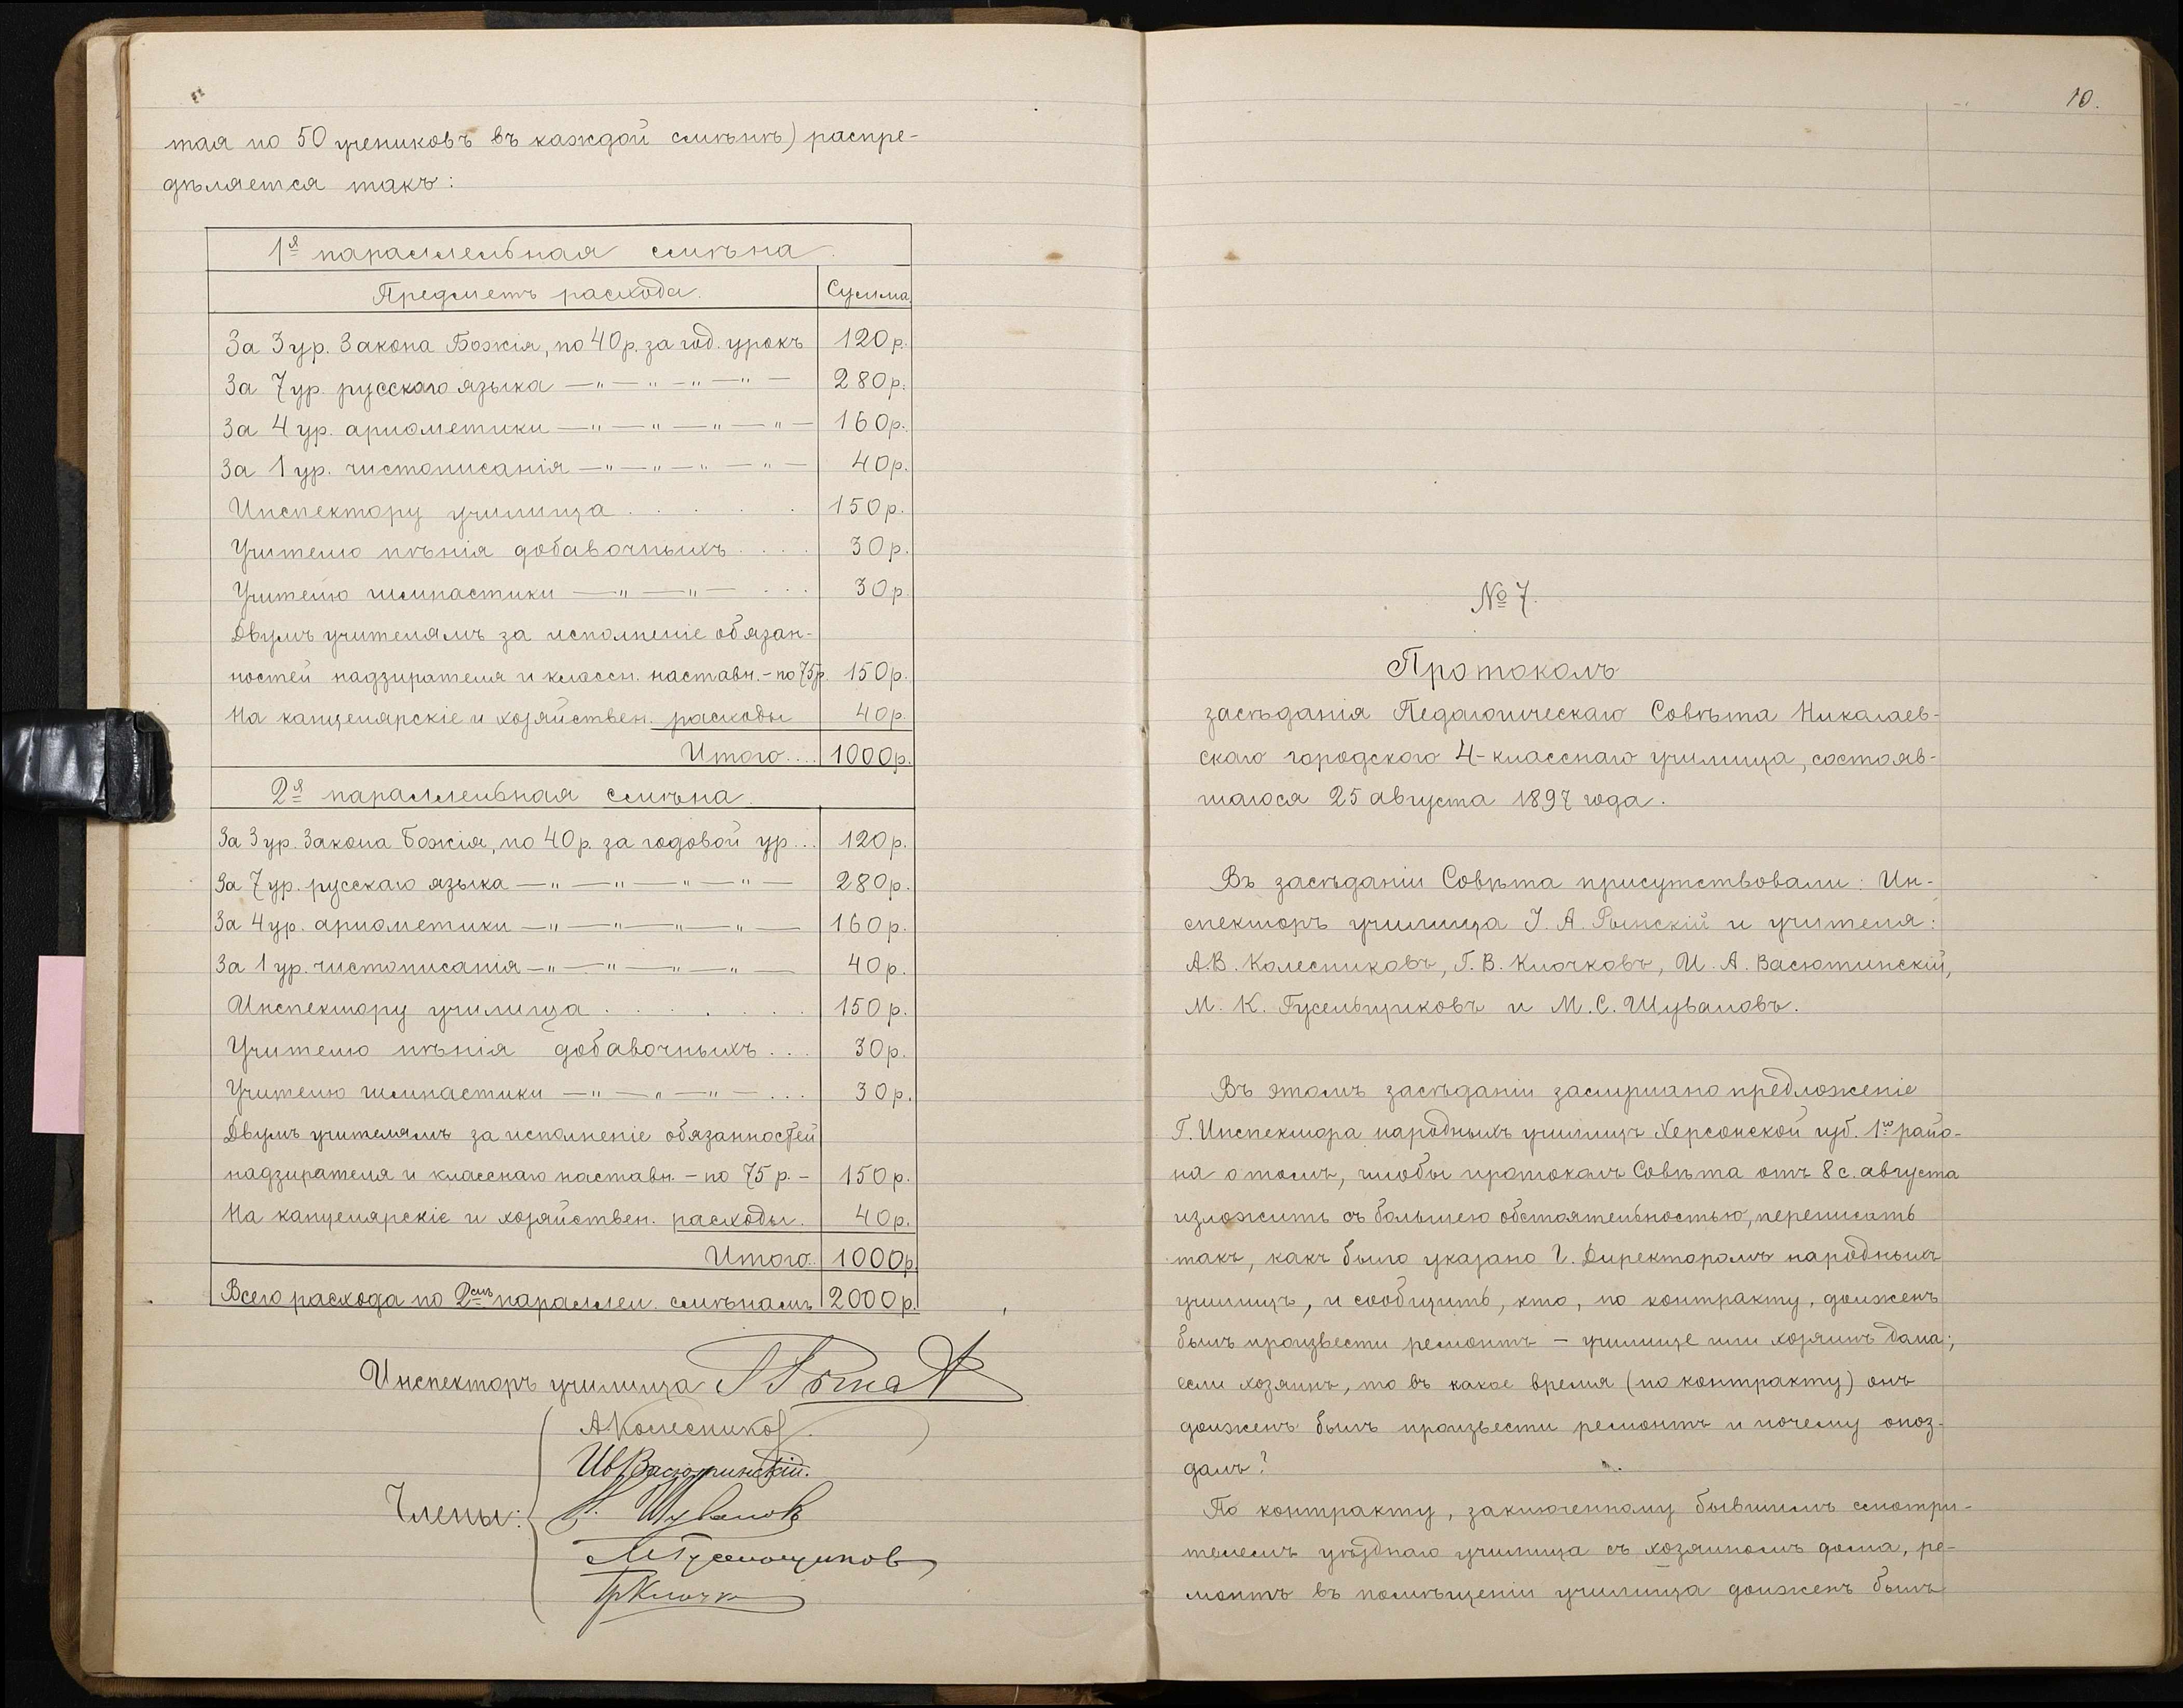 тая по 50 учениковъ въ каждой смѣнѣ) распре-
дѣляется такъ:
1я параллельная смѣна.
Предметъ расхода. Сумма
За 3 ур. Закона Божія, по 40 р. за год. урокъ 120 р.
За 7 ур. русскаго языка —"—"—"—"— 280 р.
За 4 ур. ариѳметики —"—"—"—"— 160 р.
За 1 ур. чистописанія —"—"—"—"— 40 р.
Инспектору училища . . . . . 150 р.
Учителю пѣнія добавочныхъ . . . . 30 р.
Учителю гимнастики —"—"— . . . 30 р.
Двумъ учителямъ за исполненіе обязан-
ностей надзирателя и классн. наставн. - по 75 р. 150 р.
На канцелярскіе и хозяйствен. расходы 40 р.
Итого.... 1000 р.
2я параллельная смѣна.
За 3 ур. Закона Божія, по 40 р. за годовой ур... 120 р.
За 7 ур. русскаго языка —"—"—"—"— 280 р.
За 4 ур. ариѳметики —"—"—"—"— 160 р.
За 1 ур. чистописанія —"—"—"—"— 40 р.
Инспектору училища . . . . . . 150 р.
Учителю пѣнія добавочныхъ . . . 30 р.
Учителю гимнастики —"—"—"— . . . 30 р.
Двумъ учителямъ за исполненіе обязанностей
надзирателя и класснаго наставн. - по 75 р. - 150 р.
На канцелярскіе и хозяйствен. расходы. 40 р.
Итого.. 1000 р.
Всего расхода по 2мъ параллел. смѣнамъ 2000 р.
Инспекторъ училища
Члены:
А Колесников
Ив Васютинскій.
Шувалов
М Гусельщиков
Гр Клочк
10.
№ 7.
Протоколъ
засѣданія Педагогическаго Совѣта Николаев-
скаго городского 4-класснаго училища, состояв-
шагося 25 августа 1897 года.
Въ засѣданіи Совѣта присутствовали: Ин-
спекторъ училища І. А. Рынскій и учителя:
А. В. Колесниковъ, Г. В. Клочковъ, И. А. Васютинскій,
М. К. Гусельщиковъ и М. С. Шуваловъ.
Въ этомъ засѣданіи заслушано предложеніе
Г. Инспектора народныхъ училищъ Херсонской губ. 1го райо-
на о томъ, чтобы протоколъ Совѣта отъ 8 с. августа
изложить съ большею обстоятельностью, переписать
такъ, какъ было указано Г. Директоромъ народныхъ
училищъ, и сообщить, кто, по контракту, долженъ
былъ произвести ремонтъ - училище или хозяинъ дома;
если хозяинъ, то въ какое время (по контракту) онъ
долженъ былъ произвести ремонтъ и почему опоз-
далъ?
По контракту, заключенному бывшимъ смотри-
телемъ уѣзднаго училища съ хозяиномъ дома, ре-
монтъ въ помѣщеніи училища долженъ былъ